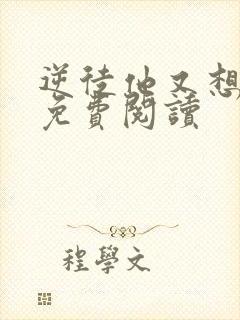 逆徒他又想
免費閱讀
程學文